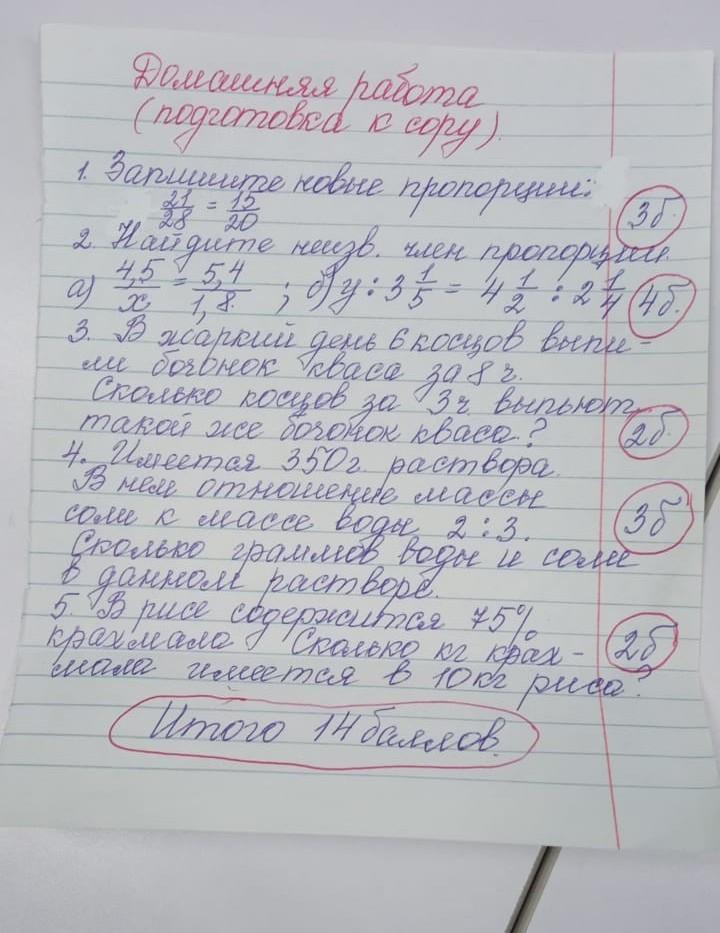 Домашняя работа
(подготовка к сору).
1. Запишите новые пропорции:
21/28 = 15/20
3б.
2. Найдите неизв. член пропорции.
а) 4,5/х = 5,4/1,8 ; б) у : 3 1/5 = 4 1/2 : 2 1/4
4б.
3. В жаркий день 6 косцов выпи-
ли бочонок кваса за 8 ч.
Сколько косцов за 3ч выпьют
такой же бочонок кваса?
2б.
4. Имеется 350г. раствора.
В нем отношение массы
соли к массе воды 2:3.
3б
Сколько граммов воды и соли
в данном растворе.
5. В рисе содержится 75%
крахмала Сколько кг крах-
2б
мала имеется в 10кг риса?
Итого 14 баллов.